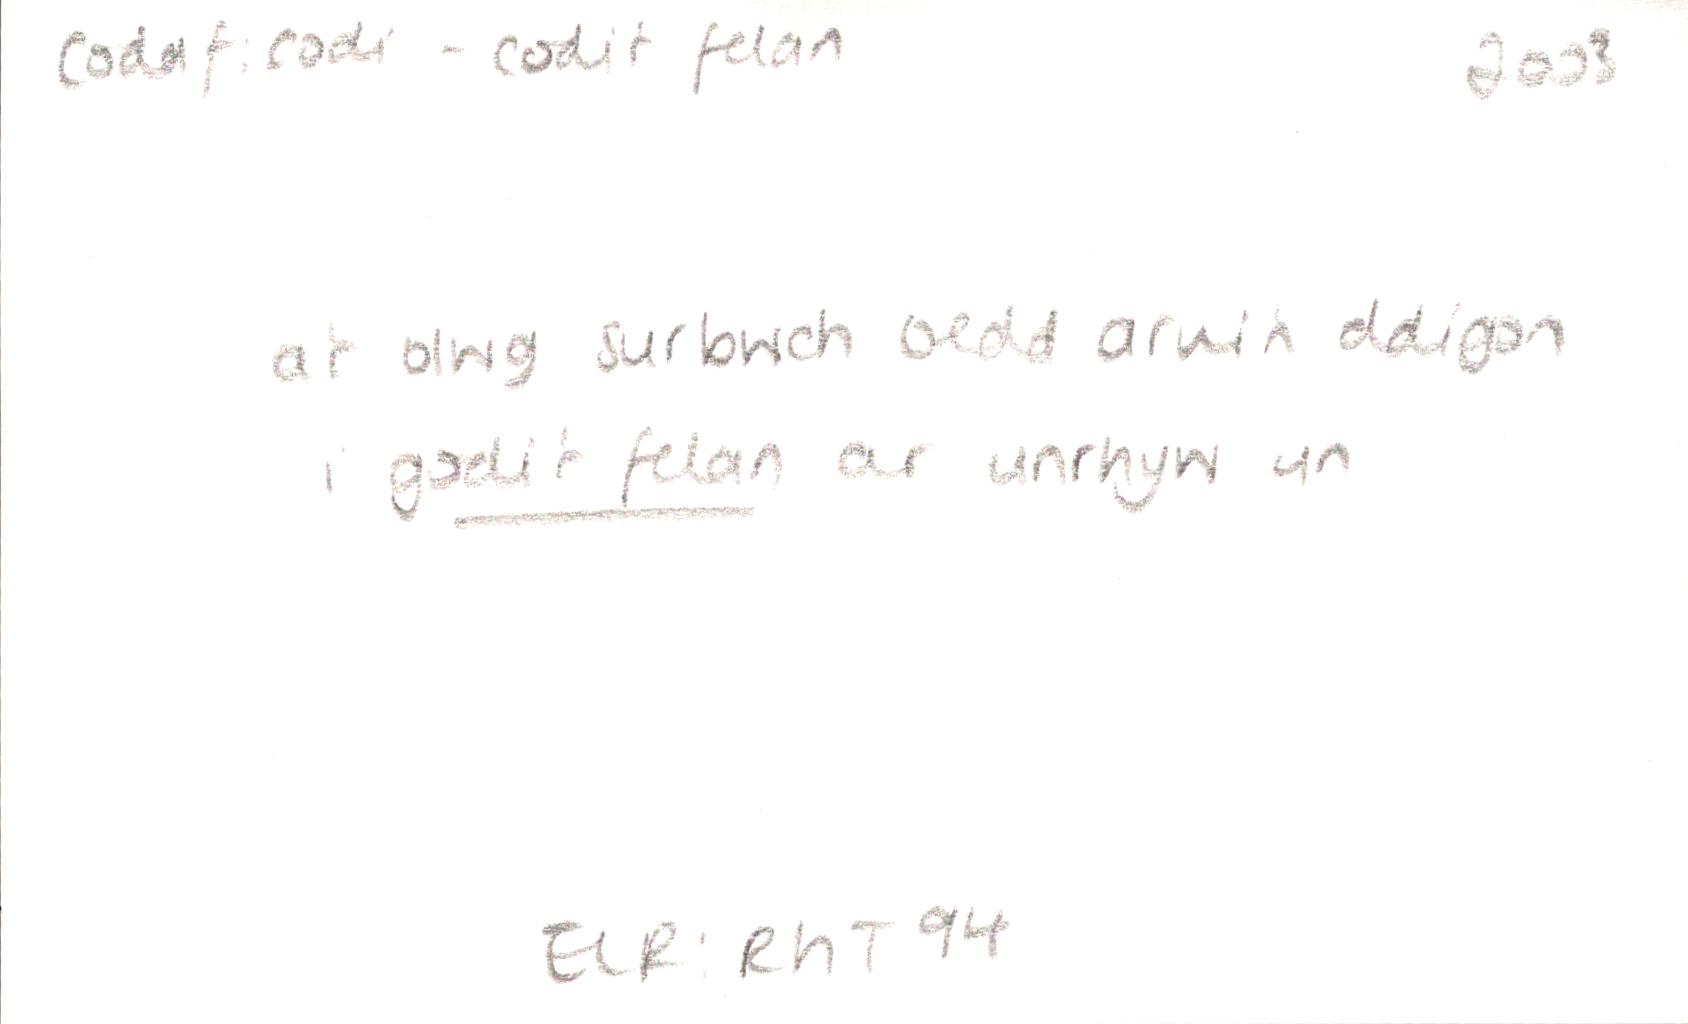 codaf: codi - codi'r felan 2003
a'r olwg surbwch oedd arnin ddigon
i godi'r felan ar unrhyw un
ELR: RhT 94